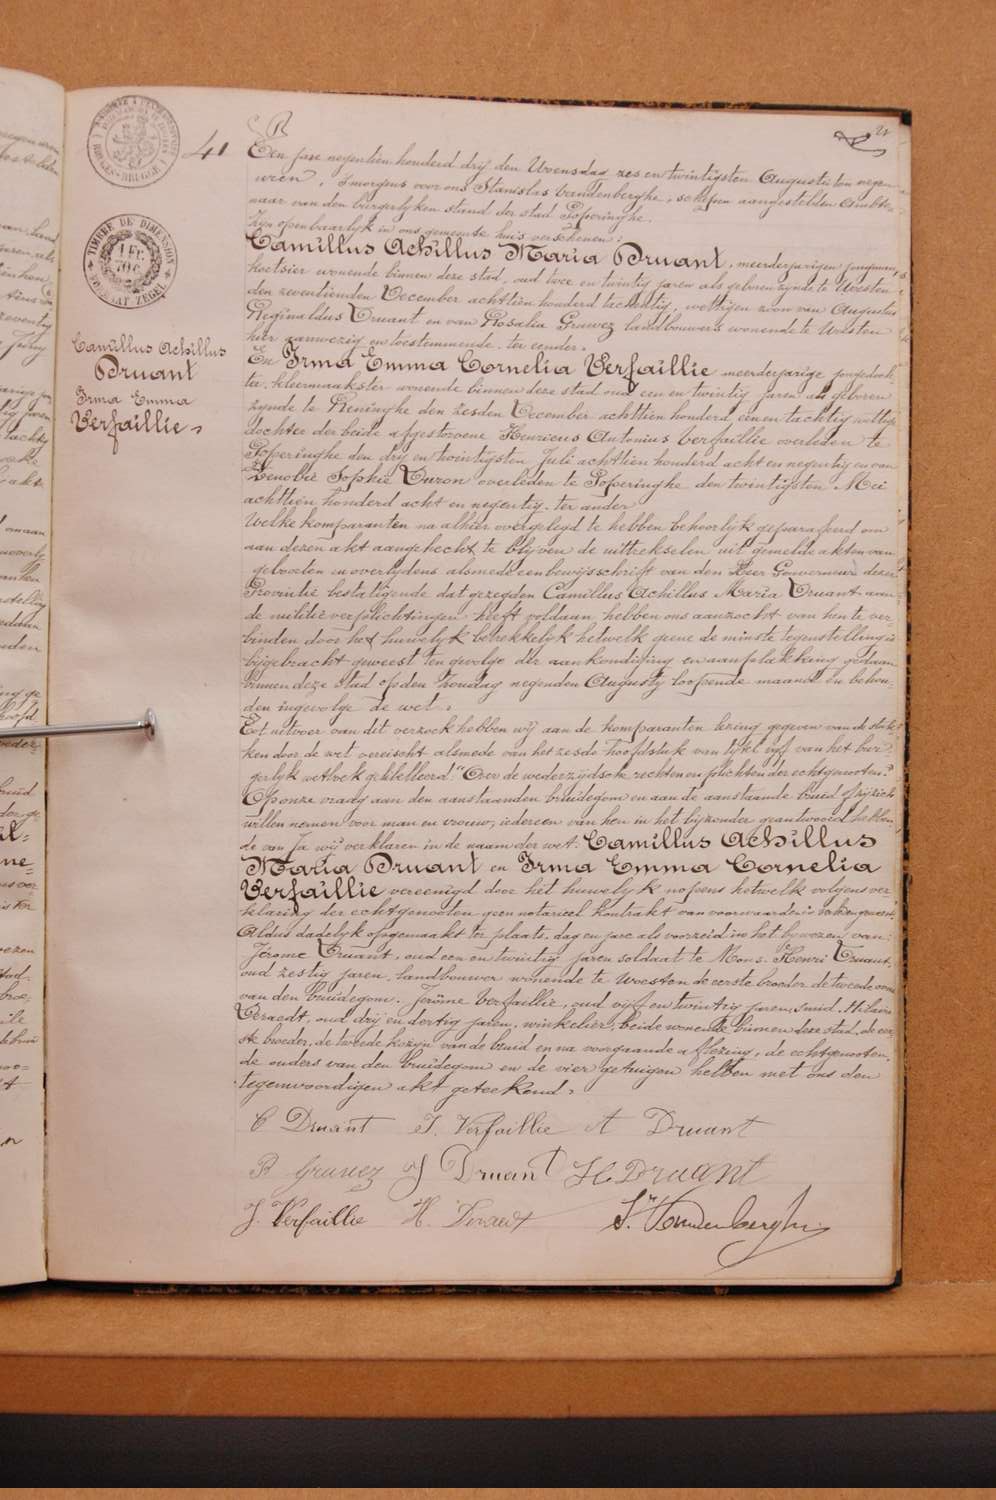 41
21
Een jare negentien honderd drij den Woensdag zes en twintigsten Augusti ten negen
uren, 's morgens voor ons Stanislas Vandenberghe, schepen aangestelden ambte-
naar van den burgerlyken stand der stad Poperinghe.
Zyn openbaarlyk in ons gemeente huis verschenen:
Camillus Achillus Maria Druant, meerderjarigen jongman,
koetsier wonende binnen deze stad, oud twee en twintig jaren als geboren zynde te Woesten
den zeventienden December achttien honderd tachentig, wettigen zoon van Augustus
Reginaldus Druant en van Rosalia Gruwez landbouwers wonende te Woesten
hier aanwezig en toestemmende. ter eender.
En Irma Emma Cornelia Verfaillie meerderjarige jongedoch-
ter, kleermaakster wonende binnen deze stad oud een en twintig jaren als geboren
zynde te Reninghe den zesden December achttien honderd een en tachtig wettige
dochter der beide afgestorvene Henricus Antonius Verfaillie overleden te
Poperinghe den drij en twintigsten Juli achttien honderd acht en negentig en van
Zenobie Sophie Duron overleden te Poperinghe den twintigsten Mei
achttien honderd acht en negentig. ter ander
Welke komparanten na alhier overgelegd te hebben behoorlyk geparafeerd om
aan dezen akt aangehecht te blyven de uittrekselen uit gemelde akten van
geboorten en overlydens alsmede een bewysschrift van den Heer Gouverneur dezer
Provintie bestatigende dat gezegden Camillus Achillus Maria Druant aan
de militie verplichtingen heeft voldaan hebben ons aanzocht van hen te ver-
binden door het huwelyk betrekkelyk hetwelk geene de minste tegenstelling is
bijgebracht geweest ten gevolge der aankondiging en aanplakking gedaan
binnen deze stad op den Zondag negenden Augusty loopende maand en behou-
den ingevolge de wet.
Tot uitvoer van dit verzoek hebben wij aan de komparanten lezing gegeven van de stuk-
ken door de wet vereischt alsmede van het zesde hoofdstuk van tytel vyf van het bur-
gerlyk wetboek getiteleerd: "Over de wederzydsche rechten en plichten der echtgenooten."
Op onze vraag aan den aanstaanden bruidegom en aan de aanstaande bruid of zy zich
willen nemen voor man en vrouw, iedereen van hen in het byzonder geantwoord hebben-
de van Ja wij verklaren in de naam der wet: Camillus Achillus
Maria Druant en Irma Emma Cornelia
Verfaillie vereenigd door het huwelyk nopens hetwelk volgens ver-
klaring der echtgenooten geen notarieel kontrakt van voorwaarden is
Aldus dadelyk opgemaakt ter plaats, dag en jare als voorzeid in het bywezen van:
Jérome Druant, oud een en twintig jaren soldaat te Mons. Henri Druant,
oud zestig jaren, landbouwer wonende te Woesten de eerste broeder de tweede oom
van den bruidegom. Jerôme Verfaillie, oud vijf en twintig jaren, smid, Hilaire
Deraedt, oud drij en dertig jaren, winkelier, beide wonende binnen deze stad, de eer-
ste broeder, de tweede kozyn van de bruid en na voorgaande aflezing, de echtgenooten,
de ouders van den bruidegom en de vier getuigen hebben met ons den
tegenwoordigen akt geteekend.
C Druant I. Verfaillie A Druant
R Gruwez J Druant H Druant
J. Verfaillie H. Deraedt S. Vandenberghe
Camillus Achillus
Druant
Irma Emma
Verfaillie
TIMBRE DE DIMENSION
1 FC.